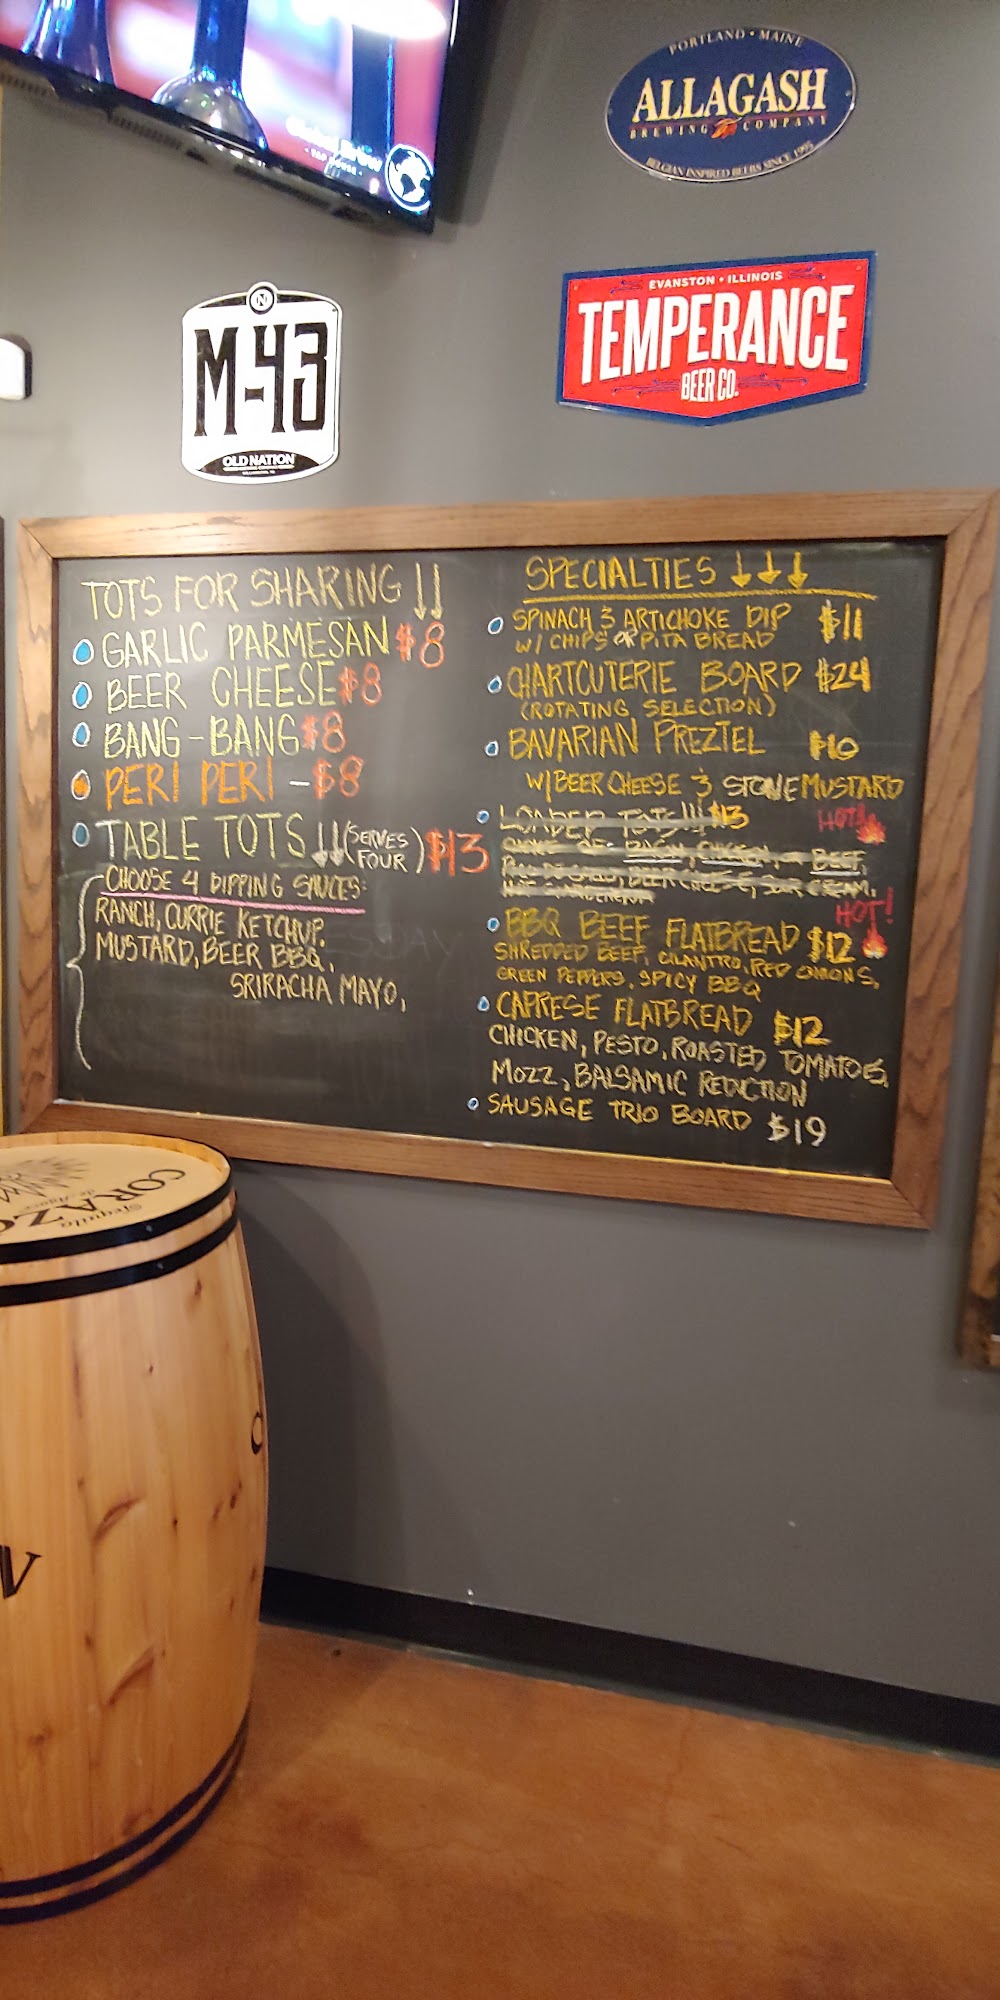 PORTLAND • MAINE
ALLAGASH
BREWING COMPANY
BELGIAN INSPIRED BEERS SINCE 1995
EVANSTON • ILLINOIS
TEMPERANCE
BEER CO.
N
M-43
OLD NATION
TAP HOUSE
TOTS FOR SHARING ↓↓
GARLIC PARMESAN $8
BEER CHEESE $8
BANG-BANG $8
PERI PERI - $8
TABLE TOTS ↓↓ (SERVES FOUR) $13
CHOOSE 4 DIPPING SAUCES:
RANCH, CURRIE KETCHUP.
MUSTARD, BEER BBQ,
SRIRACHA MAYO,
SPECIALTIES ↓↓↓
SPINACH & ARTICHOKE DIP $11
W/ CHIPS OR PITA BREAD
CHARTCUTERIE BOARD $24
(ROTATING SELECTION)
BAVARIAN PREZTEL $10
W/ BEER CHEESE & STONE MUSTARD
LOADED TOTS!!! $13 HOT!!
BACON, CHICKEN, OR BEEF,
BEER CHEESE, SOUR CREAM,
HOT GIARDENERA
HOT!
BBQ BEEF FLATBREAD $12
SHREDDED BEEF, CILANTRO, RED ONIONS,
GREEN PEPPERS, SPICY BBQ
CAPRESE FLATBREAD $12
CHICKEN, PESTO, ROASTED TOMATOES,
MOZZ, BALSAMIC REDUCTION
SAUSAGE TRIO BOARD $19
CORAZ
Tequila